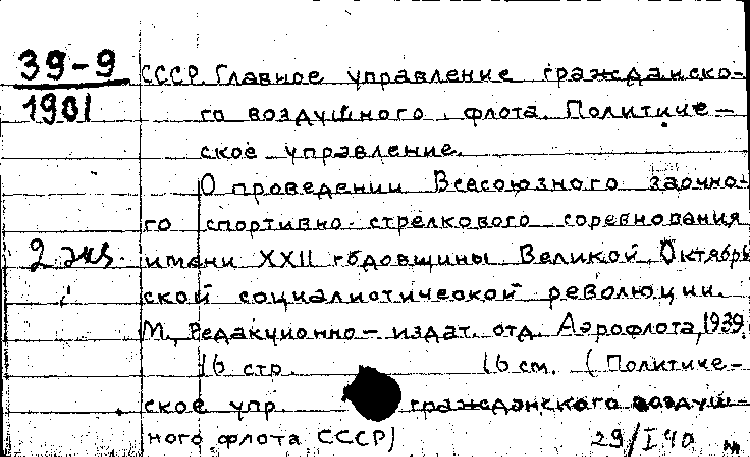 39-9 СССР. Главное управление гражданско-
1901 го воздушного флота. Политиче-
ское управление.
О проведении Всесоюзного заочно-
го спортивно-стрелкового соревнования
2 экз. имени XXII годовщины Великой Октябрь
ской социалистической революции.
М., Редакционно-издат. отд. Аэрофлота, 1939.
16 стр. 16 см. (Политиче-
ское упр. гражданского воздуш-
ного флота СССР)
29/I 40